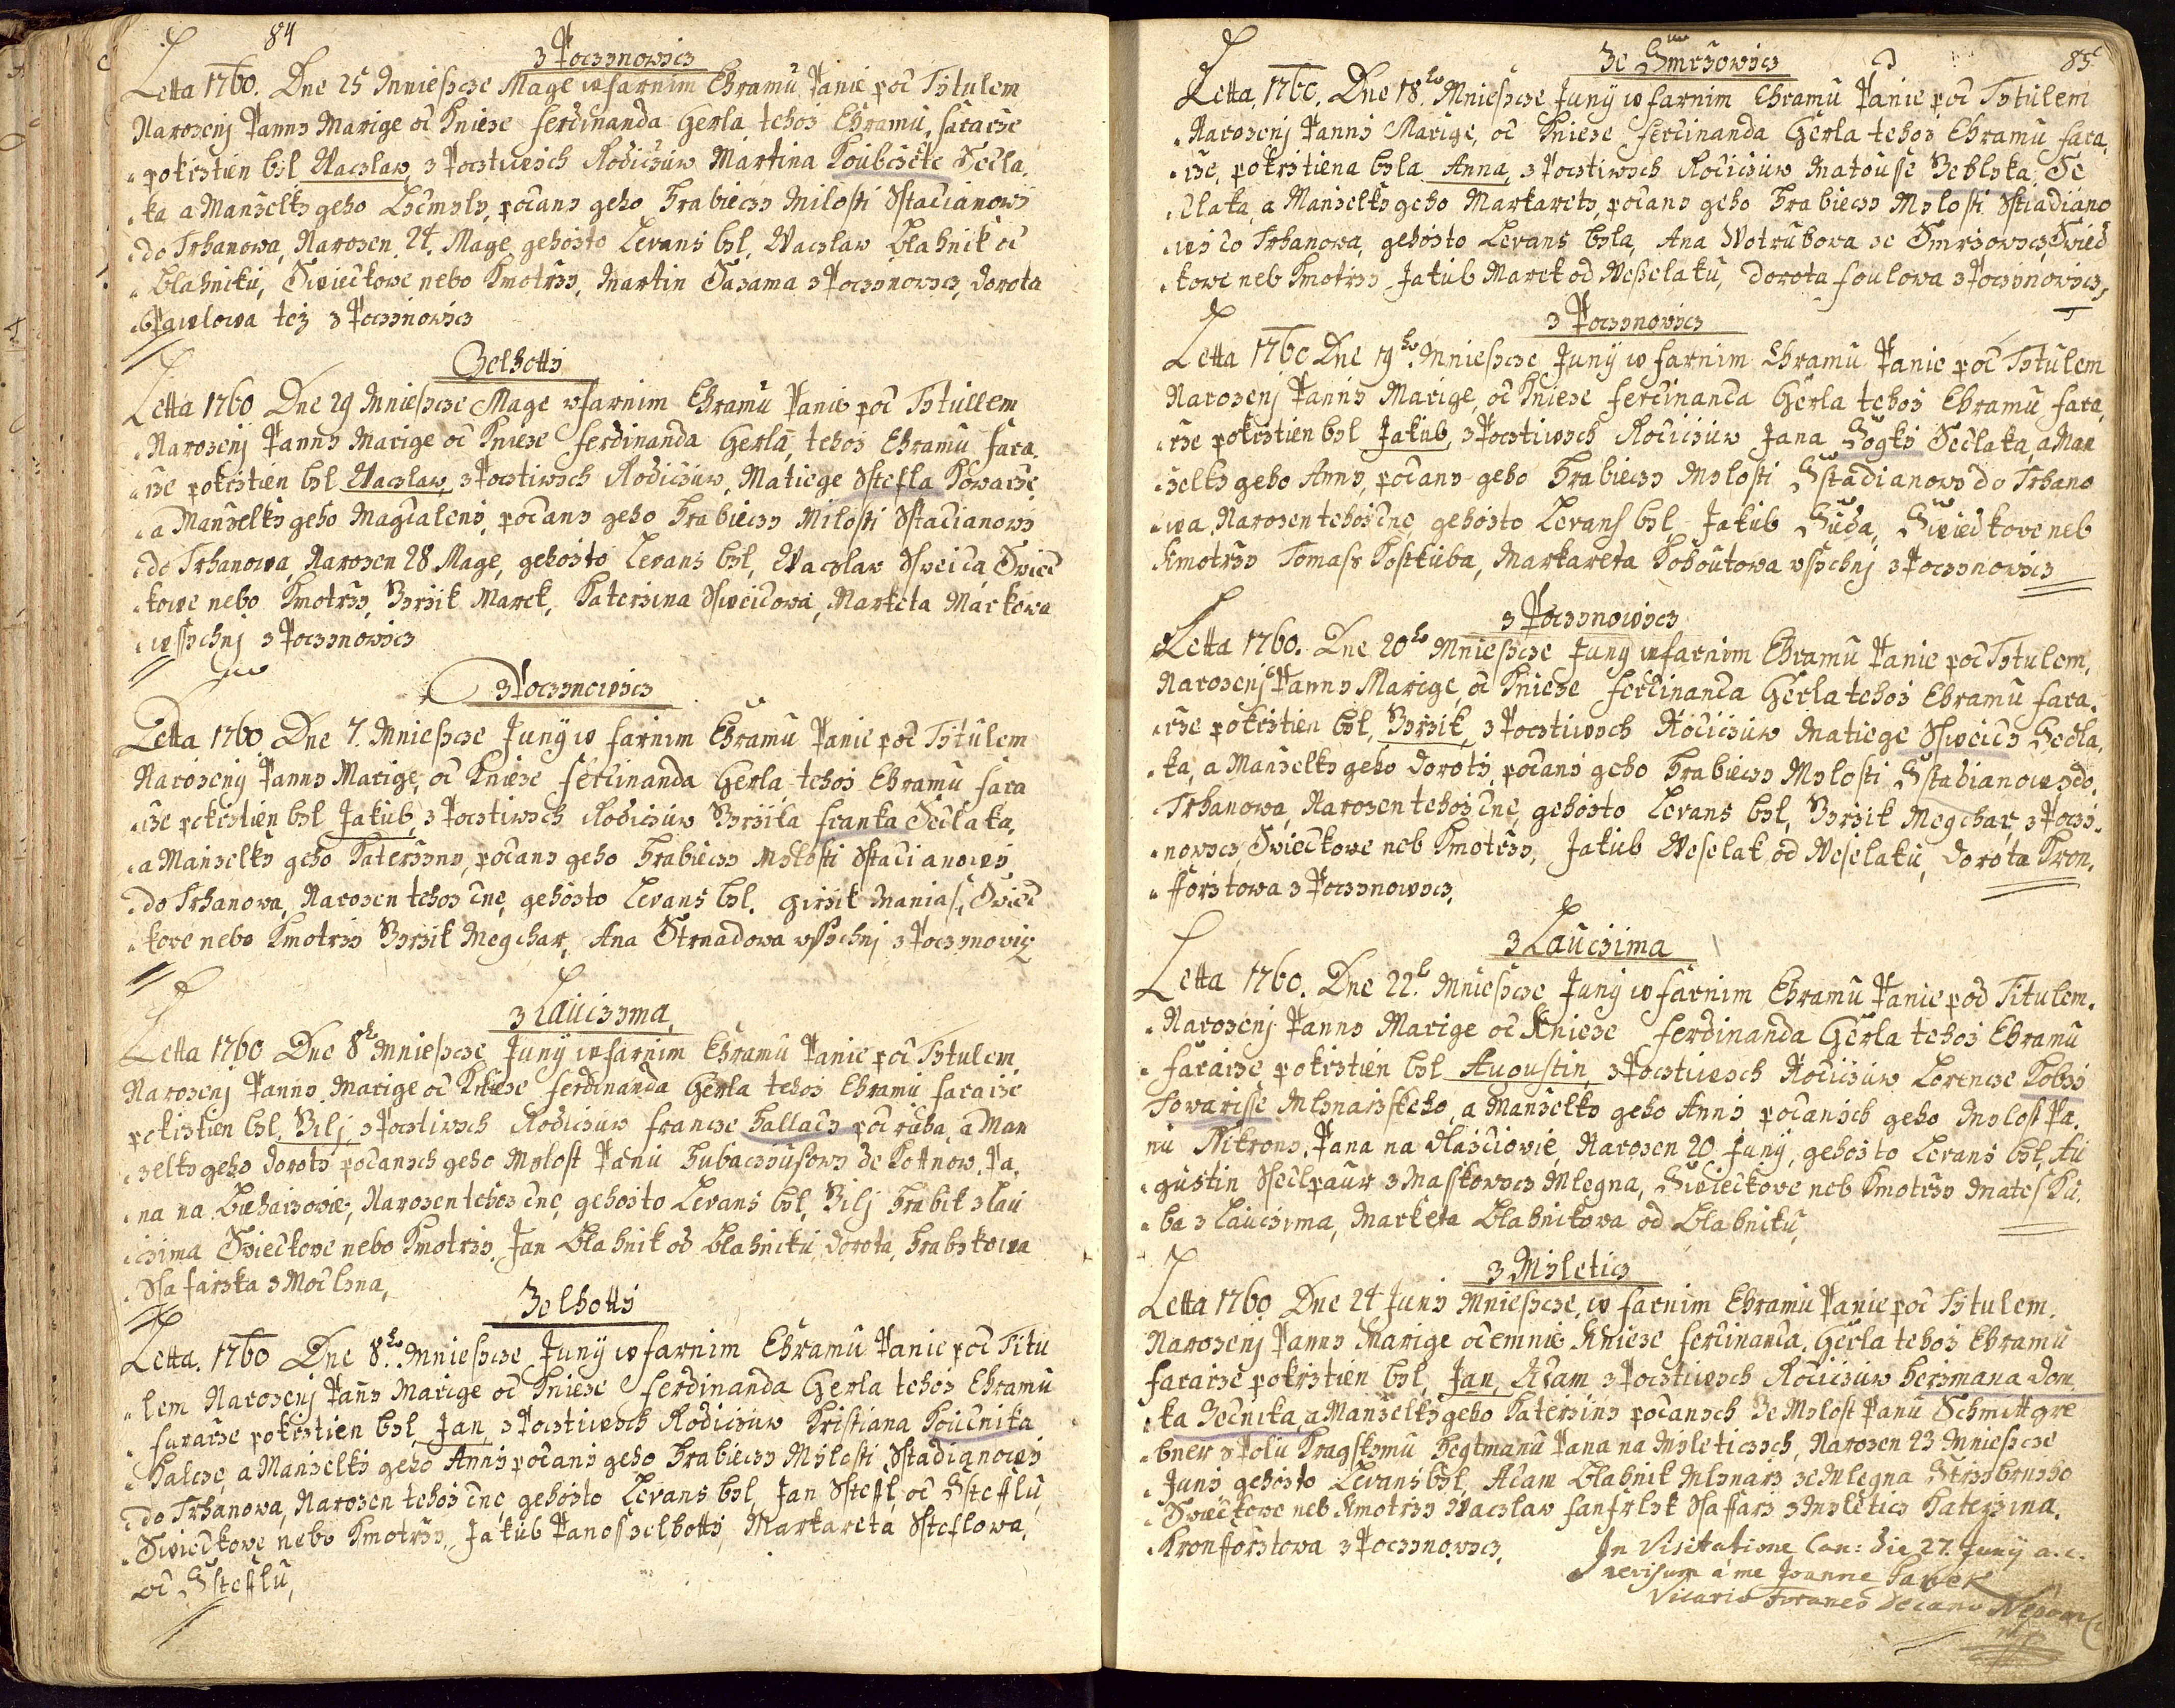 84
z Poczynowicz
Letta 1760. Dne 25 Mniesycze Mage w farnim Chramu Panie pod Tytulem
Narozenj Panny Marige od Knieze Ferdinanda Gerla tehoz Chramu, fararze
pokrztien byl Waczlaw, z Pocztiwych Rodiczuw Martina Koubczete Sedla,
ka a Manzelky geho Lydmyly, podany geho Hrabieczy Milosti Sstadianowy
do Trhanowa, Narozen 24. Mage, gehozto Levans byl, Waczlaw Blahnik od
Blahniku, Swiedkowe nebo Kmotrzy, Martin Sazama z Poczynowicz, Dorota
Pawlowa tez z Poczinowicz
Zelhotty
Letta 1760 Dne 29 Mniesycze Mage w farnim Chramu Panie pod Tytullem
Narozenj Panny Marige od Knieze Ferdinanda Gerla, tehoz Chramu fara,
rze pokrztien byl Waczlaw, z Pocztiwych Rodiczuw, Matiege Sstefla Kowarze,
a Manzelky geho Magdaleny, podany geho Hrabieczy Milosti Sstadianowy
do Trhanowa, Narozen 28 Mage, gehozto Levans byl, Waczlaw Sweida, Swied
kowe nebo Kmotrzy, Brzik Marek, Katerzina Sweidowa, Marketa Markowa
wssychnj z Poczynowicz
z Poczynowicz
Letta 1760 Dne 7. Mniesycze Juny w farnim Chramu Panie pod Tytulem
Narozeny Panny Marige, od Knieze Ferdinanda Gerla tehoz Chramu fara
rze pokrztien byl Jakub, z Pocztiwych Rodiczuw Brziila Franka Sedlaka,
a Manzelky geho Katerzyny, podany geho Hrabieczy Mylosti Sstadianowy
do Trhanowa, Narozen tehoz dne, gehozto Levans byl. Girzik Manias, Swied
kowe nebo Kmotrzy Brzik Megchar, Ana Strnadowa wssychnj z Poczynowicz
z Lauczyma,
Letta 1760 Dne 8ho Mniesycze Juny w farnim Chramu Panie pod Tytulem
Narozenj Panny Marige od Knieze Ferdinanda Gerla tehoz Chramu fararze
pokrztien byl, Bilj, z Pocztiwych Rodiczuw Francze Hallady pod ruba, a Man
zelky geho Doroty podanych geho Mylost Panu Hubaczyusowy de Kottnow, Pa,
na na Bieharzowie, Narozen tehoz dne, gehozto Levans byl, Bilj Hrabik z Lau
czima Swiedkowe nebo Kmotrzy, Jan Blahnik od Blahniku, Dorota, Hrabykowa
Ssafarzka z Modlyna,
Zelhotty
Letta. 1760 Dne 8ho. Mniesycze Juny w farnim Chramu Panie pod Titu
lem Narozenj Panny Marige od Knieze Ferdinanda Gerla tehoz Chramu
fararze pokrztien byl, Jan, z Pocztiwych Rodiczuw Kristiana Koudnika
Kalcze, a Manzelky geho Anny podany geho Hrabieczy Mylosti Sstadianowy
do Trhanowa, Narozen tehoz dne, gehozto Levans byl, Jan Ssteffl, od Ssteflu,
Swiedkowe nebo Kmotrzy, Jakub Panos zelhotty, Markareta Ssteflowa,
od Ssteflu,
85
Ze Smrzowicz
Letta, 1760. Dne 18ho Mniesycze Juny w farnim Chramu Panie pod Tytulem
Narozenj Panny Marige, od Knieze Ferdinanda Gerla tehoz Chramu fara,
rze, pokrztiena byla Anna, z Pocztiwych Rodiczuw Matousse Beblyka, Se
dlaka, a Manzelky geho Markarety, podany geho Hrabieczy Mylosti Sstiadiano
wy do Trhanowa, gehozto Levans byla, Ana Wotrubowa ze Smrzowicz, Swied
kowe neb Kmotrzy Jakub Marek od Nesselaku, Dorota Foulowa z Poczynowicz,
z Poczynowicz
Letta 1760 Dne 19ho. Mniesycze Juny w farnim Chramu Panie pod Tytulem
Narozenj Panny Marige, od Knieze Ferdinanda Gerla tehoz Chramu fara,
rze pokrztien byl Jakub, z Pocztiwych Rodiczuw Jana Sogky Sedlaka, a Man
zelky geho Anny, podany geho Hrabieczy Mylosti Sstadianowy do Trhano
wa, Narozen tehoz dne, gehozto Levans byl, Jakub Suda, Swiedkowe neb
Kmotrzy Tomass Kosstuba, Markareta Kohoutowa wssychnj z Poczynowicz
z Poczynowicz
Letta 1760. Dne 20ho Mniesycze Juny w farnim Chramu Panie pod Tytulem,
Narozenj Panny Marige, od Knieze Ferdinanda Gerla tehoz Chramu fara,
rze pokrztien byl, Brzik, z Pocztiwych Rodiczuw Matiege Sweidy Sedla,
ka, a Manzelky geho Doroty, podany geho Hrabieczy Mylosti Sstadianowy do
Trhanowa, Narozen tehoz dne, gehozto Levans byl, Brzik Megchar, z Poczy
nowicz, Swiedkowe neb Kmotrzy, Jakub Weselak od Weselaku, Dorota Kron,
fforstowa z Poczynowicz,
z Lauczima
Letta 1760. Dne 22ho Mniesycze Juny w farnim Chramu Panie pod Titulem.
Narozenj Panny Marige od Knieze Ferdinanda Gerla tehoz Chramu
fararze pokrztien byl Augustin, z Pocztiwych Rodiczuw Lorencze Kobzy
Towarisse Mlynarzskeho, a Manzelky geho Anny podanych geho Mylost Pa,
nu Nikrony, Pana na Wlasdiowie, Narozen 20 Juny, gehozto Levans byl, Au
gustin Ssedlpaur z Maskowicz Mlegna, Swiedkowe neb Kmotrzy Mates Ku,
ba z Lauczima, Marketa Blahnikowa od Blahniku,
z Myleticz
Letta 1760. Dne 24 Juny Mniesycze, w farnim Chramu Panie pod Tytulem,
Narozenj Panny Marige odemnie Knieze Ferdinanda, Gerla tehoz Chramu
fararze pokrztien byl, Jan, Adam z Pocztiwych Rodiczuw Herzmana Dom,
ka Zednika, a Manzelky geho Katerziny podanych Ze Mylost Panu Schmittgre
bner z Polu Kragskymu Hegtmanu Pana na Myleticzych, Narozen 23 Mniesycze
Juny gehozto Levans byl, Adam Blahnik Mlynarz ze Mlegna Strzybrnyho
Swiedkowe neb Kmotrzy Waczlaw Fanfrlyk Ssaffarz z Myleticz Katerzina,
Kronfforstowa z Poczynowicz,
In Visitatione Can: die 27. Juny a. c.
revisum à me Joanne Janek
Vicario Foraneo Decano Nepom
mp